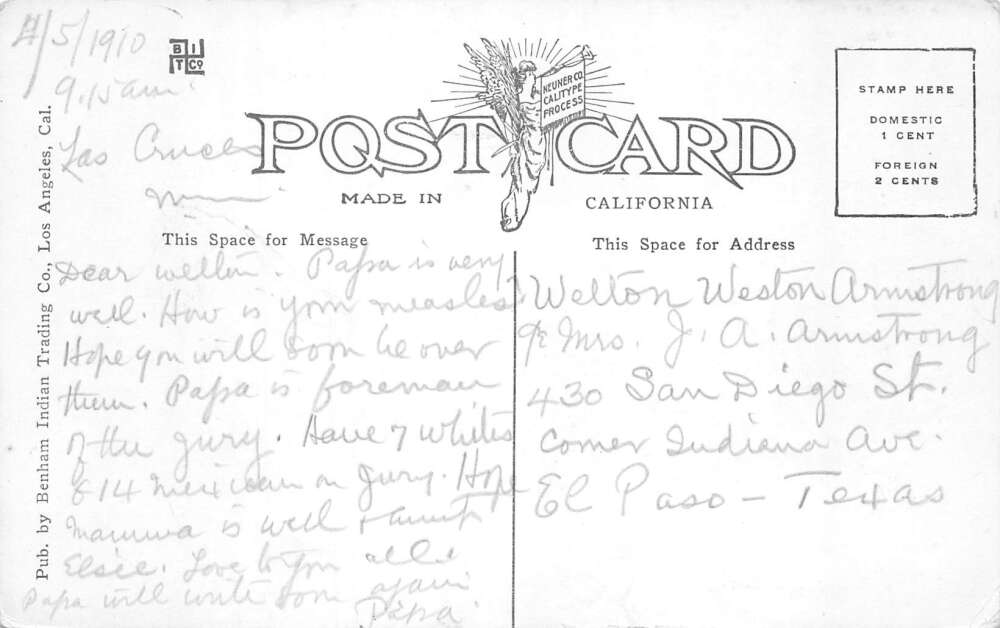 4/5/1910
9.15 am.
Las Cruces
B I
T Co
NEUNER CO.
CALITYPE
PROCESS
POST CARD
MADE IN CALIFORNIA
STAMP HERE
DOMESTIC
1 CENT
FOREIGN
2 CENTS
Pub. by Benham Indian Trading Co., Los Angeles, Cal.
This Space for Message
Dear Welton. Papa is very
well. How is your measles
Hope you will soon be over
them. Papa is foreman
of the jury. Have 7 whites
& 14 Mexican on Jury. Hope
Mamma is well + Aunt
Elsie. Love to you all &
Papa will write soon again
Papa.
This Space for Address
Welton Weston Armstrong
Mrs. J. A. Armstrong
430 San Diego St.
Corner Indiana Ave.
El Paso - Texas